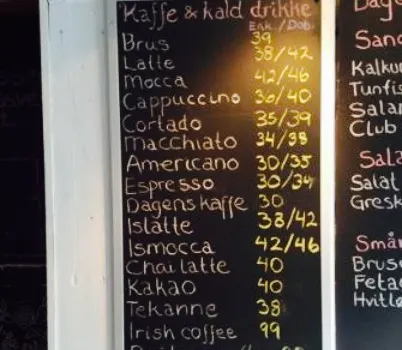 Kaffe & kald drikke
Enk./Dob.
Brus 39
Latte 38/42
Mocca 42/46
Cappuccino 36/40
Cortado 35/39
Macchiato 34/38
Americano 30/35
Espresso 30/34
Dagens kaffe 30
Islatte 38/42
Ismocca 42/46
Chai latte 40
Kakao 40
Tekanne 38
Irish coffee 99
Sand
Kalku
Tunfis
Salam
Club
Sala
Salat
Gresk
Smår
Brus
Feta
Hvitlø